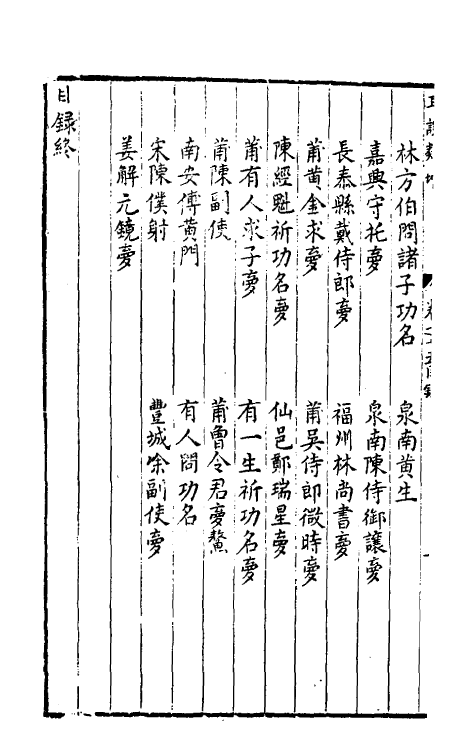 林方伯問諸子功名　泉南黄生
嘉興守祀夢　泉南陳侍御讓夢
長泰縣戴侍郎夢　福州林尚書夢
莆黄金求夢　莆吳侍郎微時夢
陳經魁祈功名夢　仙邑鄭瑞星夢
莆有人求子夢　有一生祈功名夢
莆陳副使　莆曾令君夢鰲
南安傅黄門　有人問功名
宋陳僕射　豐城余副使夢
姜解元鏡夢
目録終